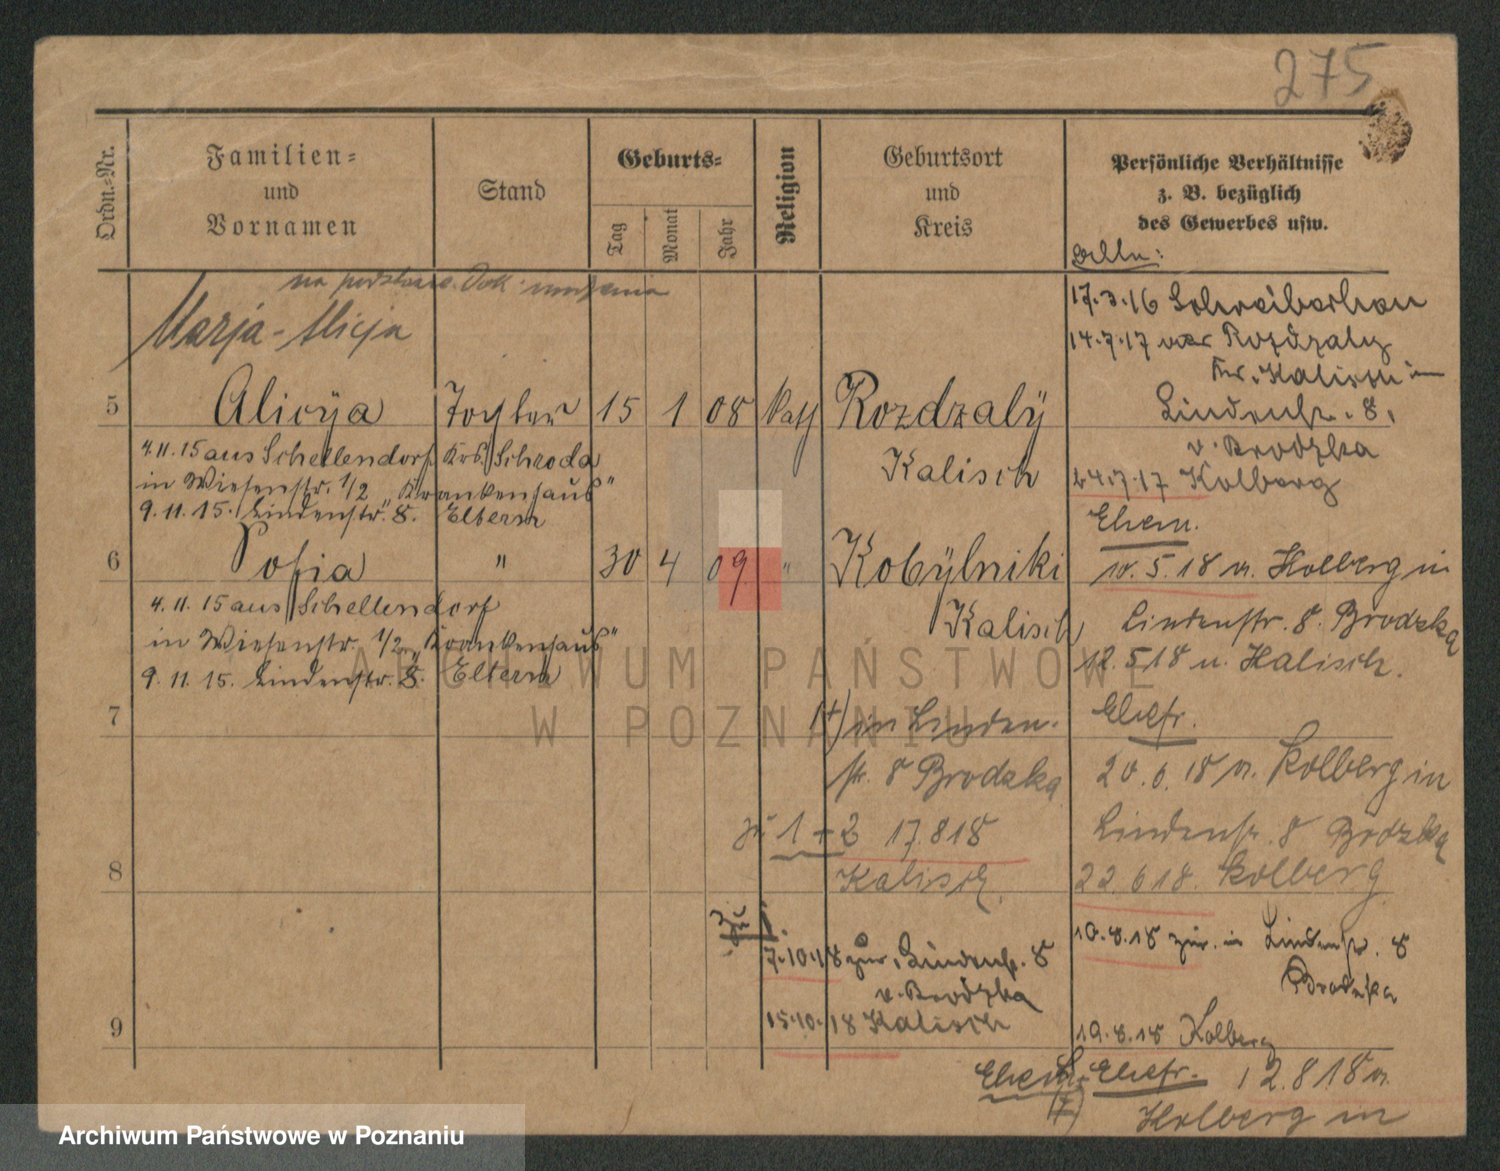 275
Ordn.=Nr.
Familien=
und
Vornamen
Stand
Geburts=
Tag
Monat
Jahr
Religion
Geburtsort
und
Kreis
Persönliche Verhältnisse
z. B. bezüglich
des Gewerbes usw.
na podstawie Dok.
Marja-Alicja
5
Alicya
Tochter
15
1
08
kath
Rozdzaly
Kalisch
4.11.15 aus Schellendorf Krs. Schroda
in Wiesenstr. 1/2 „Krankenhaus"
9.11.15. Lindenstr. 8. Eltern
6
Sofia
"
30
4
09
"
Kobylniki
Kalisch
4.11.15 aus Schellendorf
in Wiesenstr. 1/2 „Krankenhaus"
9.11.15. Lindenstr. 8. Eltern
7
in Linden-
str. 8 Brodzka
zu 1 + 2 17.8 18
Kalisch
8
zu 1.
7.10.18 zur. Lindenstr. 8
v. Brodzka
15.10.18 Kalisch
9
17.3.16 Schreiberhau
14.7.17 von Rozdzaly
Kr. Kalisch in
Lindenstr. 8,
v. Brodzka
24.7.17 Kolberg
Ehem.
10.5.18 v. Kolberg in
Lindenstr. 8. Brodzka
12.5 18 n. Kalisch.
Ehefr.
20.6.18 v. Kolberg in
Lindenstr. 8 Brodzka
22.6 18. Kolberg
10.8.18 zur. in Lindenstr. 8
Brodzka
19.8.18 Kolberg
Ehem. Ehefr. 12.8 18 v.
Kolberg in
ARCHIWUM PAŃSTWOWE
W POZNANIU
Archiwum Państwowe w Poznaniu